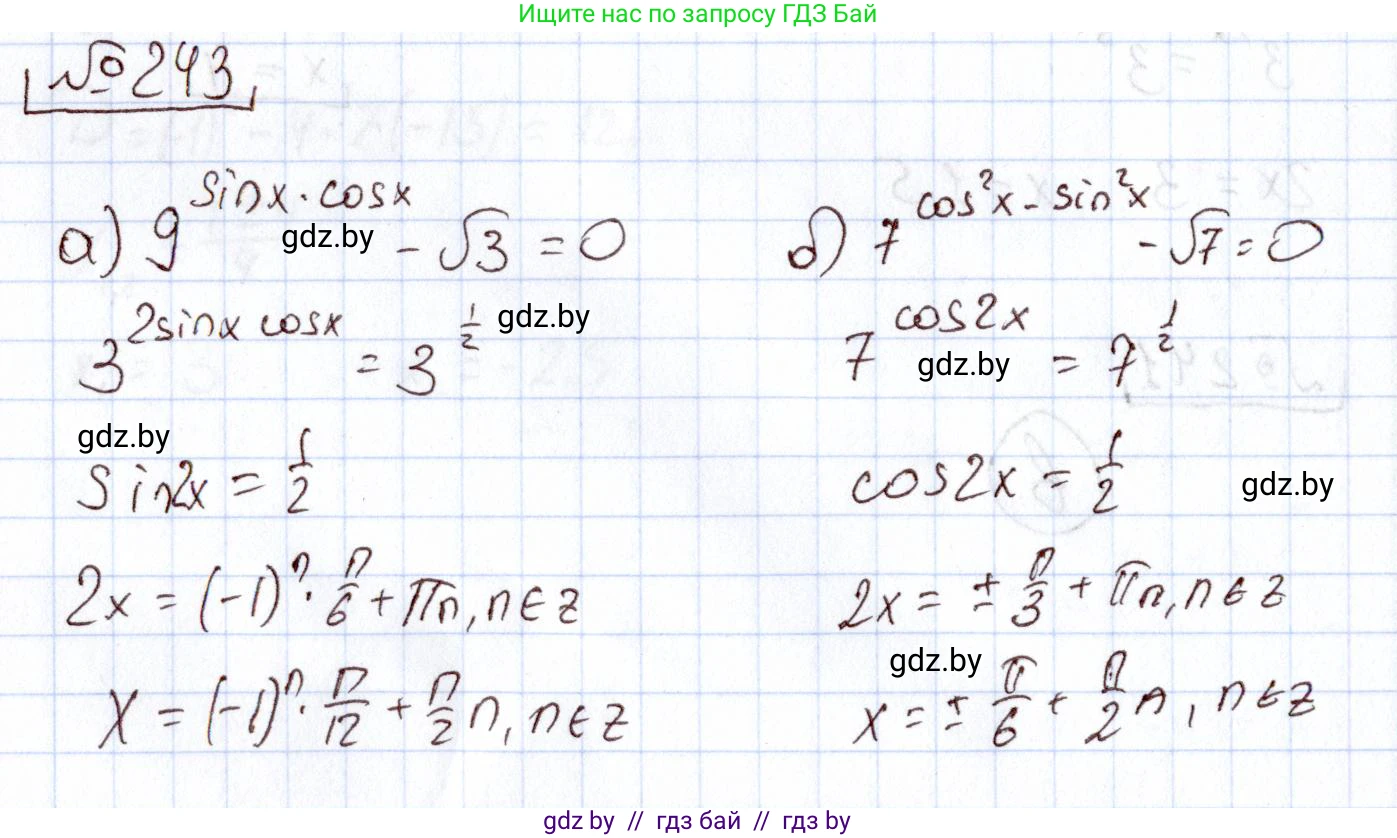 Ищите нас по запросу ГДЗ Бай
№243
а) 9^(sinx·cosx) - √3 = 0
gdz.by
3^(2sinx cosx) = 3^(1/2)
gdz.by
gdz.by
sin2x = 1/2
2x = (-1)^n · π/6 + πn, n∈z
x = (-1)^n · π/12 + π/2 n, n∈z
б) 7^(cos²x - sin²x) - √7 = 0
7^(cos2x) = 7^(1/2)
gdz.by
cos2x = 1/2
gdz.by
2x = ± π/3 + πn, n∈z
gdz.by
x = ± π/6 + π/2 n, n∈z
gdz by // гдз бай // гдз by